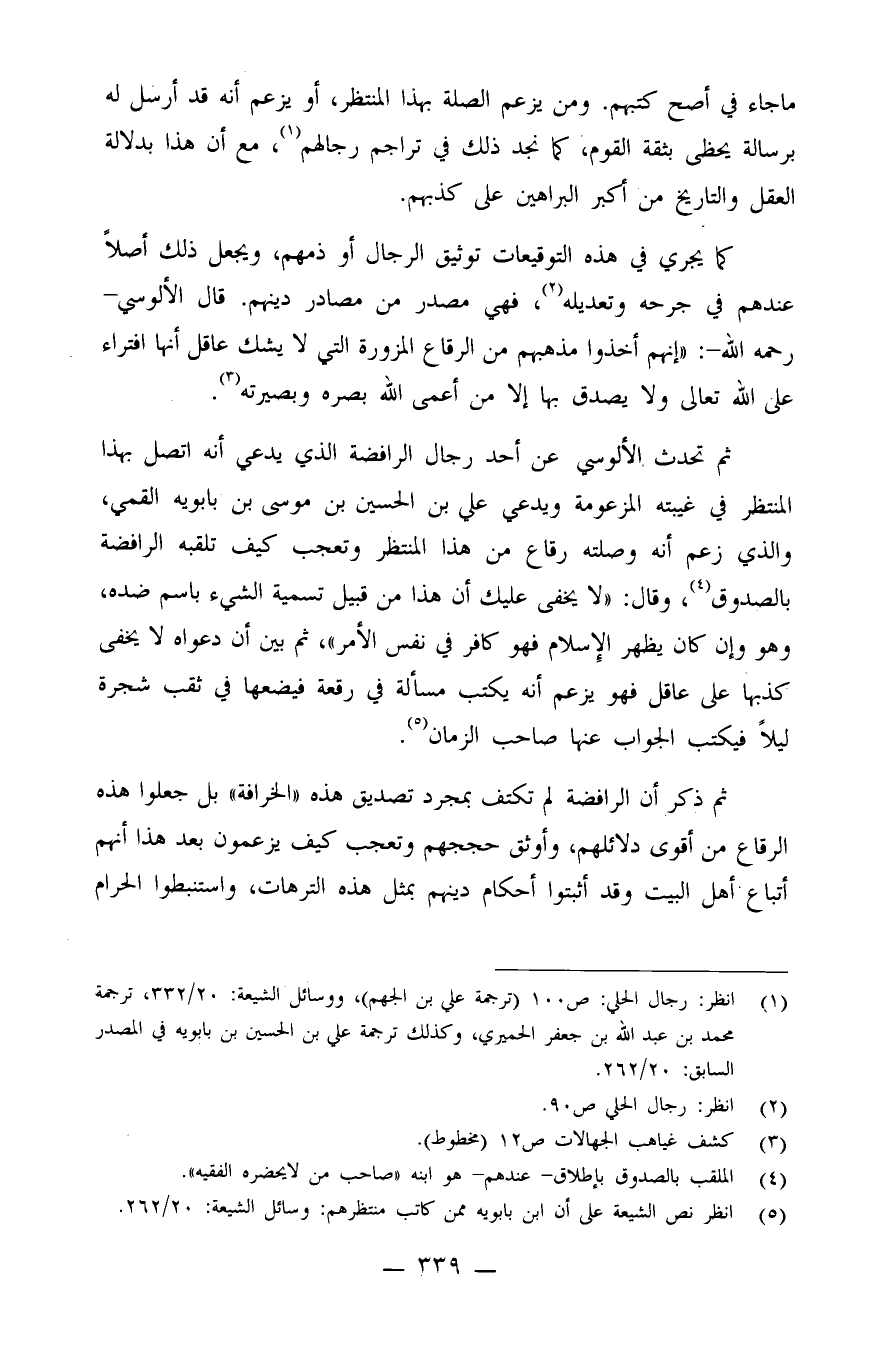 ماجاء في أصح كتبهم. ومن يزعم الصلة بهذا المنتظر، أو يزعم أنه قد أرسل له
برسالة يحظى بثقة القوم، كما نجد ذلك في تراجم رجالهم(١)، مع أن هذا بدلالة
العقل والتاريخ من أكبر البراهين على كذبهم.
كما يجري في هذه التوقيعات توثيق الرجال أو ذمهم، ويجعل ذلك أصلاً
عندهم في جرحه وتعديله(٢)، فهي مصدر من مصادر دينهم. قال الألوسي–
رحمه الله–: «إنهم أخذوا مذهبهم من الرقاع المزورة التي لا يشك عاقل أنها افتراء
على الله تعالى ولا يصدق بها إلا من أعمى الله بصره وبصيرته(٣).
ثم تحدث الألوسي عن أحد رجال الرافضة الذي يدعي أنه اتصل بهذا
المنتظر في غيبته المزعومة ويدعي علي بن الحسين بن موسى بن بابويه القمي،
والذي زعم أنه وصلته رقاع من هذا المنتظر وتعجب كيف تلقبه الرافضة
بالصدوق(٤)، وقال: «لا يخفى عليك أن هذا من قبيل تسمية الشيء باسم ضده،
وهو وإن كان يظهر الإسلام فهو كافر في نفس الأمر»، ثم بين أن دعواه لا يخفى
كذبها على عاقل فهو يزعم أنه يكتب مسألة في رقعة فيضعها في ثقب شجرة
ليلاً فيكتب الجواب عنها صاحب الزمان(٥).
ثم ذكر أن الرافضة لم تكتف بمجرد تصديق هذه «الخرافة» بل جعلوا هذه
الرقاع من أقوى دلائلهم، وأوثق حججهم وتعجب كيف يزعمون بعد هذا أنهم
أتباع أهل البيت وقد أثبتوا أحكام دينهم بمثل هذه الترهات، واستنبطوا الحرام
(١) انظر: رجال الحلي: ص١٠٠ (ترجمة علي بن الجهم)، ووسائل الشيعة: ٣٣٢/٢٠، ترجمة
محمد بن عبد الله بن جعفر الحميري، وكذلك ترجمة علي بن الحسين بن بابويه في المصدر
السابق: ٢٦٢/٢٠.
(٢) انظر: رجال الحلي ص٩٠.
(٣) كشف غياهب الجهالات ص١٢ (مخطوط).
(٤) الملقب بالصدوق بإطلاق– عندهم– هو ابنه «صاحب من لايحضره الفقيه».
(٥) انظر نص الشيعة على أن ابن بابويه ممن كاتب منتظرهم: وسائل الشيعة: ٢٦٢/٢٠.
— ٣٣٩ —